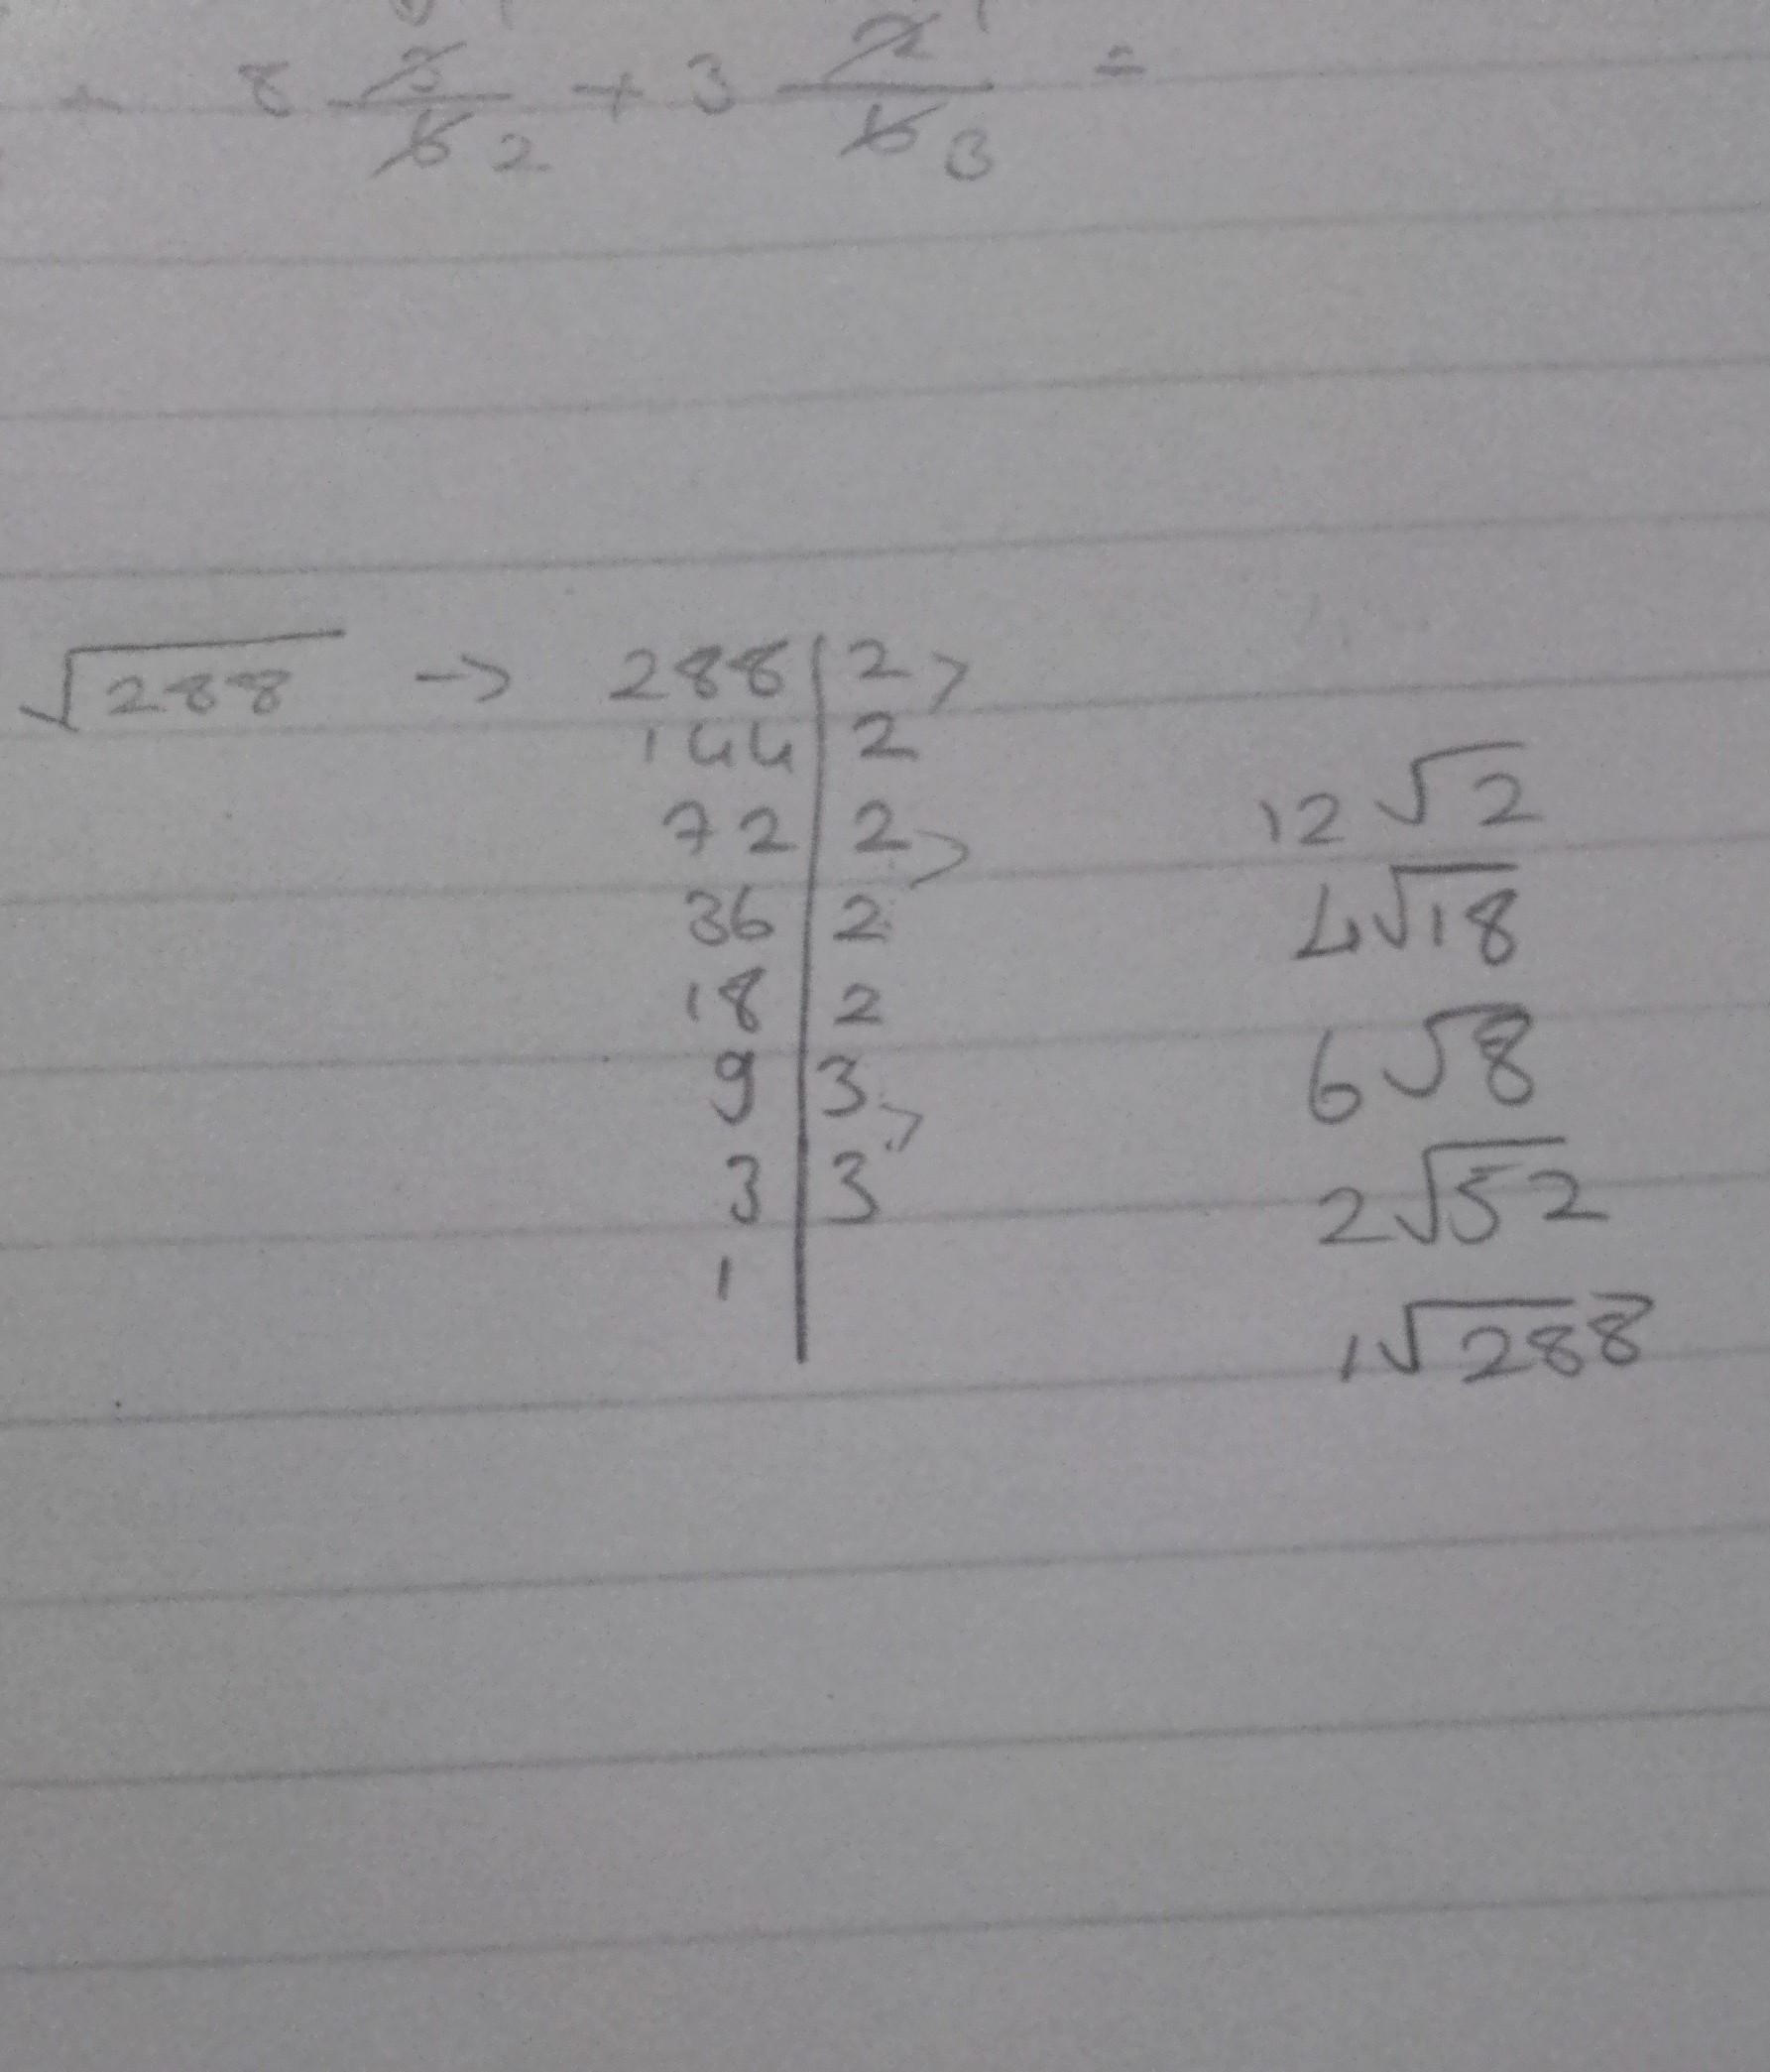 8 3/6 2 + 3 2/6 3 =
√288 → 288 | 2
144 | 2
72 | 2
36 | 2
18 | 2
9 | 3
3 | 3
1
12√2
4√18
6√8
2√52
1√288